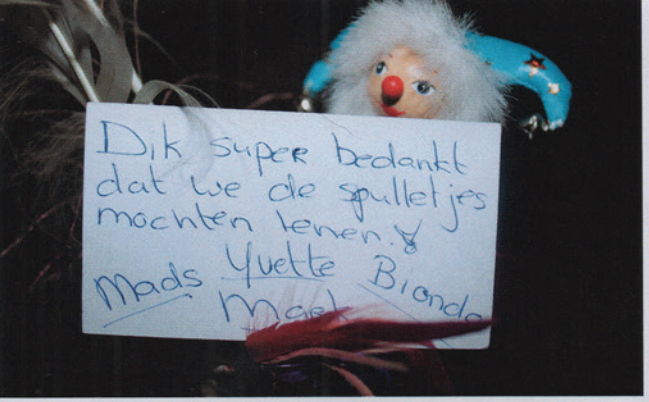 Dik super bedankt
dat we de spulletjes
mochten lenen.
Mads Yvette Bionda